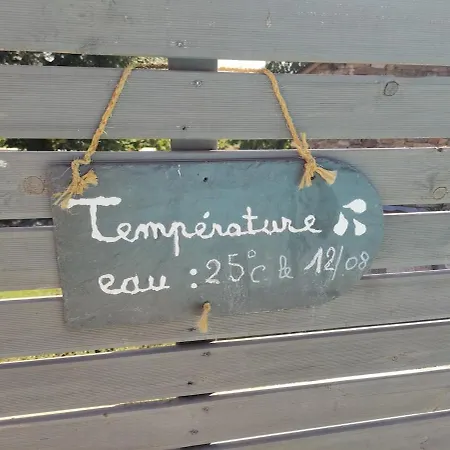 Température
eau : 25°c le 12/08